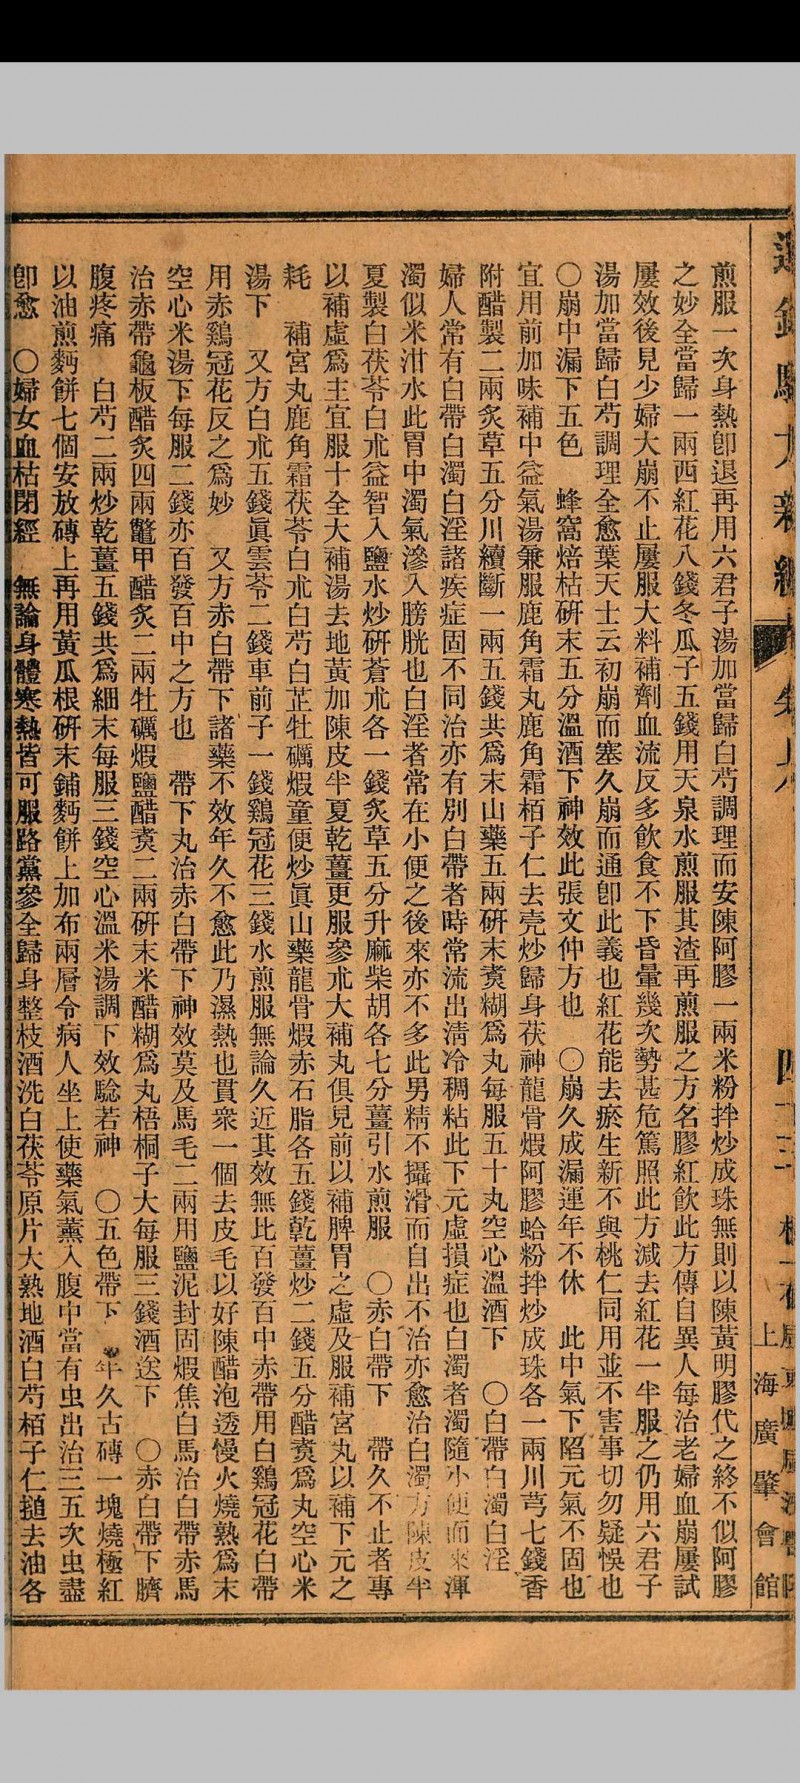 煎服一次身熱卽退再用六君子湯加當歸白芍調理而安陳阿膠一兩米粉拌炒成珠無則以陳黃明膠代之終不似阿膠
之妙全當歸一兩西紅花八錢冬瓜子五錢用天泉水煎服其渣再煎服之方名膠紅飲此方傳自異人每治老婦血崩屢試
屢效後見少婦大崩不止屢服大料補劑血流反多飲食不下昏暈幾次勢甚危篤照此方減去紅花一半服之仍用六君子
湯加當歸白芍調理全愈葉天士云初崩而塞久崩而通卽此義也紅花能去瘀生新不與桃仁同用並不害事切勿疑悞也
〇崩中漏下五色 蜂窩焙枯研末五分溫酒下神效此張文仲方也 〇崩久成漏運年不休 此中氣下陷元氣不固也
宜用前加味補中益氣湯兼服鹿角霜丸鹿角霜栢子仁去壳炒歸身茯神龍骨煆阿膠蛤粉拌炒成珠各一兩川芎七錢香
附醋製二兩炙草五分川續斷一兩五錢共爲末山藥五兩硏末煑糊爲丸每服五十丸空心溫酒下 〇白帶白濁白淫
婦人常有白帶白濁白淫諸疾症固不同治亦有別白帶者時常流出淸冷稠粘此下元虛損症也白濁者濁隨小便而來渾
濁似米泔水此胃中濁氣滲入膀胱也白淫者常在小便之後來亦不多此男精不攝滑而自出不治亦愈治白濁方陳皮半
夏製白茯苓白朮益智入鹽水炒研蒼朮各一錢炙草五分升麻柴胡各七分薑引水煎服 〇赤白帶下 帶久不止者專
以補虛爲主宜服十全大補湯去地黃加陳皮半夏乾薑更服參朮大補丸俱見前以補脾胃之虛及服補宮丸以補下元之
耗 補宮丸鹿角霜茯苓白朮白芍白芷牡礪煆童便炒眞山藥龍骨煆赤石脂各五錢乾薑炒二錢五分醋煑爲丸空心米
湯下 又方白朮五錢眞雲苓二錢車前子一錢鷄冠花三錢水煎服無論久近其效無比百發百中赤帶用白鷄冠花白帶
用赤鷄冠花反之爲妙 又方赤白帶下諸藥不效年久不愈此乃濕熱也貫衆一個去皮毛以好陳醋泡透慢火燒熟爲末
空心米湯下每服二錢亦百發百中之方也 帶下丸治赤白帶下神效莫及馬毛二兩用鹽泥封固煆焦白馬治白帶赤馬
治赤帶龜板醋炙四兩鼈甲醋炙二兩牡礪煆鹽醋煑二兩硏末米醋糊爲丸梧桐子大每服三錢酒送下 〇赤白帶下臍
腹疼痛 白芍二兩炒乾薑五錢共爲細末每服三錢空心溫米湯調下效騐若神 〇五色帶下 年久古磚一塊燒極紅
以油煎麪餅七個安放磚上再用黃瓜根硏末鋪麪餅上加布兩層令病人坐上使藥氣薰入腹中當有虫出治三五次虫盡
卽愈 〇婦女血枯閉經 無論身體寒熱皆可服路黨參全歸身整枝酒洗白茯苓原片大熟地酒白芍栢子仁搥去油各